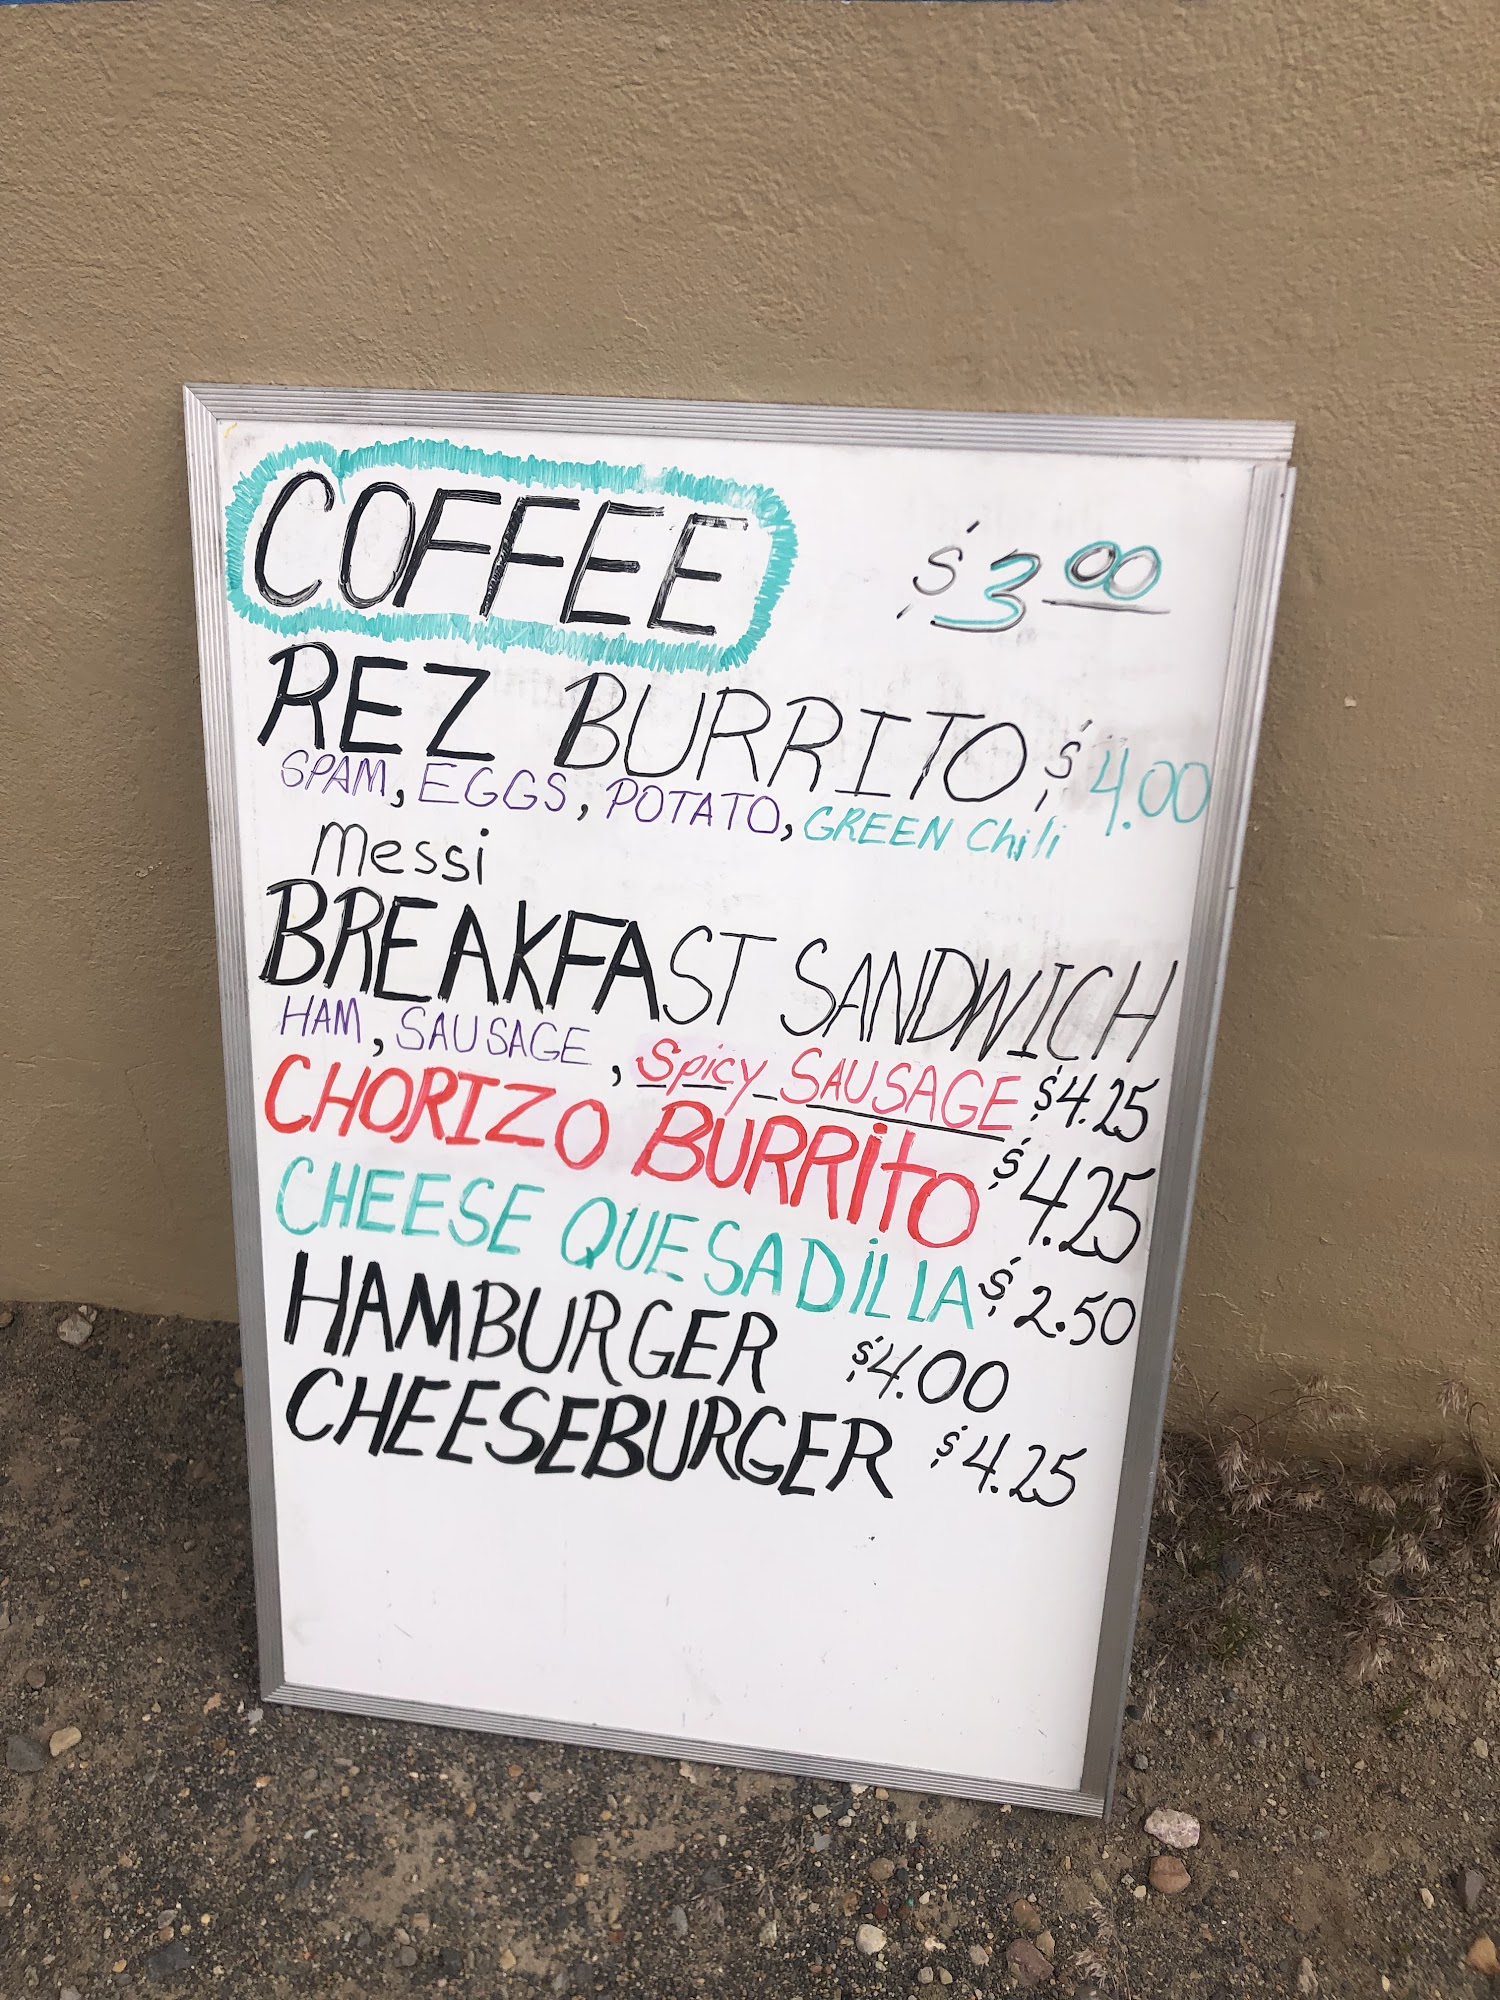 COFFEE $3.00
REZ BURRITO $4.00
SPAM, EGGS, POTATO, GREEN Chili
Messi
BREAKFAST SANDWICH
HAM, SAUSAGE, Spicy SAUSAGE $4.25
CHORIZO BURRito $4.25
CHEESE QUESADiLLA $2.50
HAMBURGER $4.00
CHEESEBURGER $4.25